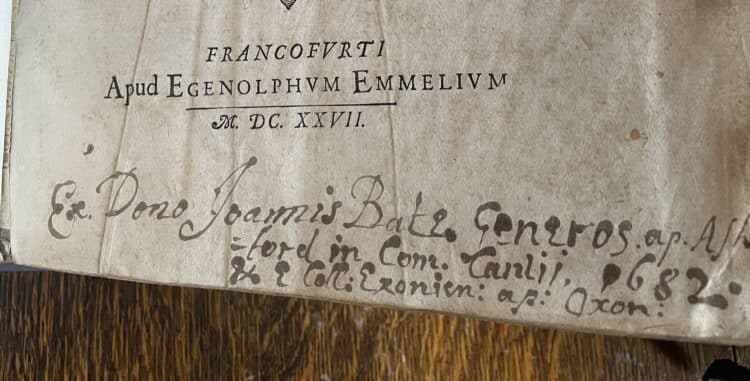 FRANCOFVRTI
Apud EGENOLPHVM EMMELIVM
M. DC. XXVII.
Ex. Dono Joannis Bate Generos. ap. Ash
=ford in Com. Cantij, 1682.
& e Coll: Exonien: ap: Oxon: